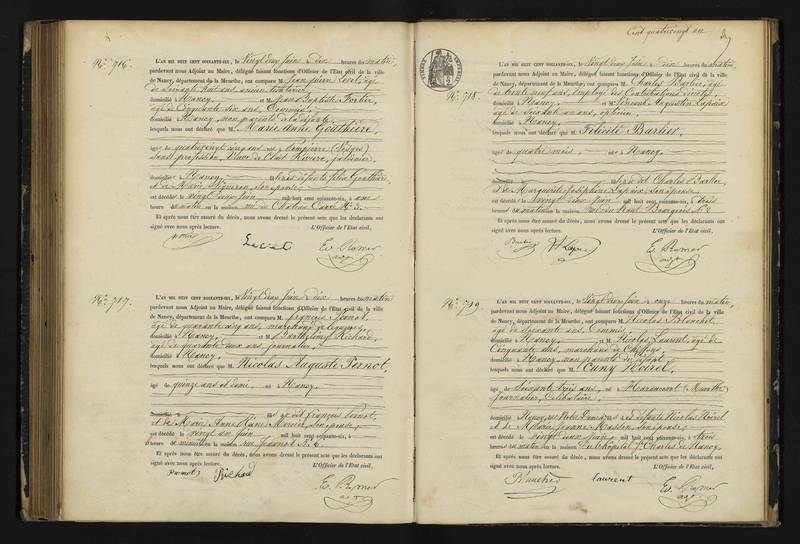 N.º 716.
L'an mil huit cent soixante-dix, le Vingt deux Juin à dix heures du matin,
pardevant nous Adjoint au Maire, délégué faisant fonctions d'Officier de l'Etat civil de la ville
de Nancy, département de la Meurthe, ont comparu M. Jean pierre Level, âgé
de Soixante huit ans, ancien tambour,
domicilié à Nancy, et M. Jean Baptiste Fortier,
âgé de Cinquante six ans, Commis,
domicilié à Nancy, non parents de la défunte,
lesquels nous ont déclaré que M. Marie Anne Gouthière,
âgée de quatrevingt cinq ans née à Pompierre (Vosges)
Sans profession, Veuve de Clait Rivière, jardinier,
domiciliée à Nancy, fille de défunts Félix Gouthière,
et de Marie Sigueron, Son épouse,
est décédée le vingt deux Juin mil huit cent soixante-dix, à une
heure du matin en la maison rue du Château Carré N.º 3.
Et après nous être assuré du décès, nous avons dressé le présent acte que les déclarants ont
signé avec nous après lecture. L'Officier de l'Etat civil,
Level Ev. Ramer
adj.t
N.º 717.
L'an mil huit cent soixante-dix, le Vingt deux Juin à dix heures du matin
pardevant nous Adjoint au Maire, délégué faisant fonctions d'Officier de l'Etat civil de la ville
de Nancy, département de la Meurthe, ont comparu M. François Pernot,
âgé de quarante cinq ans, marchand de légumes,
domicilié à Nancy, et M. Barthélemy Richard,
âgé de quarante deux ans, journalier,
domicilié à Nancy,
lesquels nous ont déclaré que M. Nicolas Auguste Pernot,
âgé de quinze ans et demi, né à Nancy,
domicilié à fils du dit François Pernot,
et de Marie Anne Marcin, Son épouse,
est décédé le vingt un Juin mil huit cent soixante-dix, à
heures en la maison rue Jeannot N.º 6
Et après nous être assuré du décès, nous avons dressé le présent acte que les déclarants ont
signé avec nous après lecture. L'Officier de l'Etat civil,
Pernot Richard Ev. Ramer
adj.t
Cent quatrevingt un
N.º 718.
L'an mil huit cent soixante-dix, le Vingt deux Juin à dix heures du matin
pardevant nous Adjoint au Maire, délégué faisant fonctions d'Officier de l'Etat civil de la ville
de Nancy, département de la Meurthe, ont comparu M. Charles Barlier, âgé
de trente neuf ans, Employé des Contributions directes,
domicilié à Nancy, et M. Vincent Augustin Lapaix
âgé de Soixante un ans, opticien,
domicilié à Nancy,
lesquels nous ont déclaré que M. Félicité Barlier,
âgée de quatre mois, née à Nancy,
domiciliée à fille de dit Charles Barlier,
et de Marguerite Joséphine Lapaix, Son épouse,
est décédée le vingt deux Juin mil huit cent soixante-dix, à trois
heures du matin en la maison rue du Haut Bourgeois N.º
Et après nous être assuré du décès, nous avons dressé le présent acte que les déclarants ont
signé avec nous après lecture. L'Officier de l'Etat civil,
Barlier Lapaix Ev. Ramer
adj.t
N.º 719
L'an mil huit cent soixante-dix, le Vingt deux Juin à onze heures du matin,
pardevant nous Adjoint au Maire, délégué faisant fonctions d'Officier de l'Etat civil de la ville
de Nancy, département de la Meurthe, ont comparu M. Nicolas Blanchet,
âgé de soixante ans, Commis,
domicilié à Nancy, et M. Nicolas Laurent, âgé de
Cinquante ans, marchand de Chiffons,
domicilié à Nancy, non parents du défunt,
lesquels nous ont déclaré que M. Cuny Noirel,
âgé de Soixante trois ans, né à Haraucourt Meurthe
journalier, Célibataire,
domicilié Nancy, rue Notre Dame fils de défunts Nicolas Noirel
et de Marie Jeanne Masson, Son épouse,
est décédé le vingt deux Juin mil huit cent soixante-dix, à trois
heures du matin en la maison De l'hôpital St. Charles de Nancy.
Et après nous être assuré du décès, nous avons dressé le présent acte que les déclarants ont
signé avec nous après lecture. L'Officier de l'Etat civil,
Blanchet Laurent Ev. Ramer
adj.t